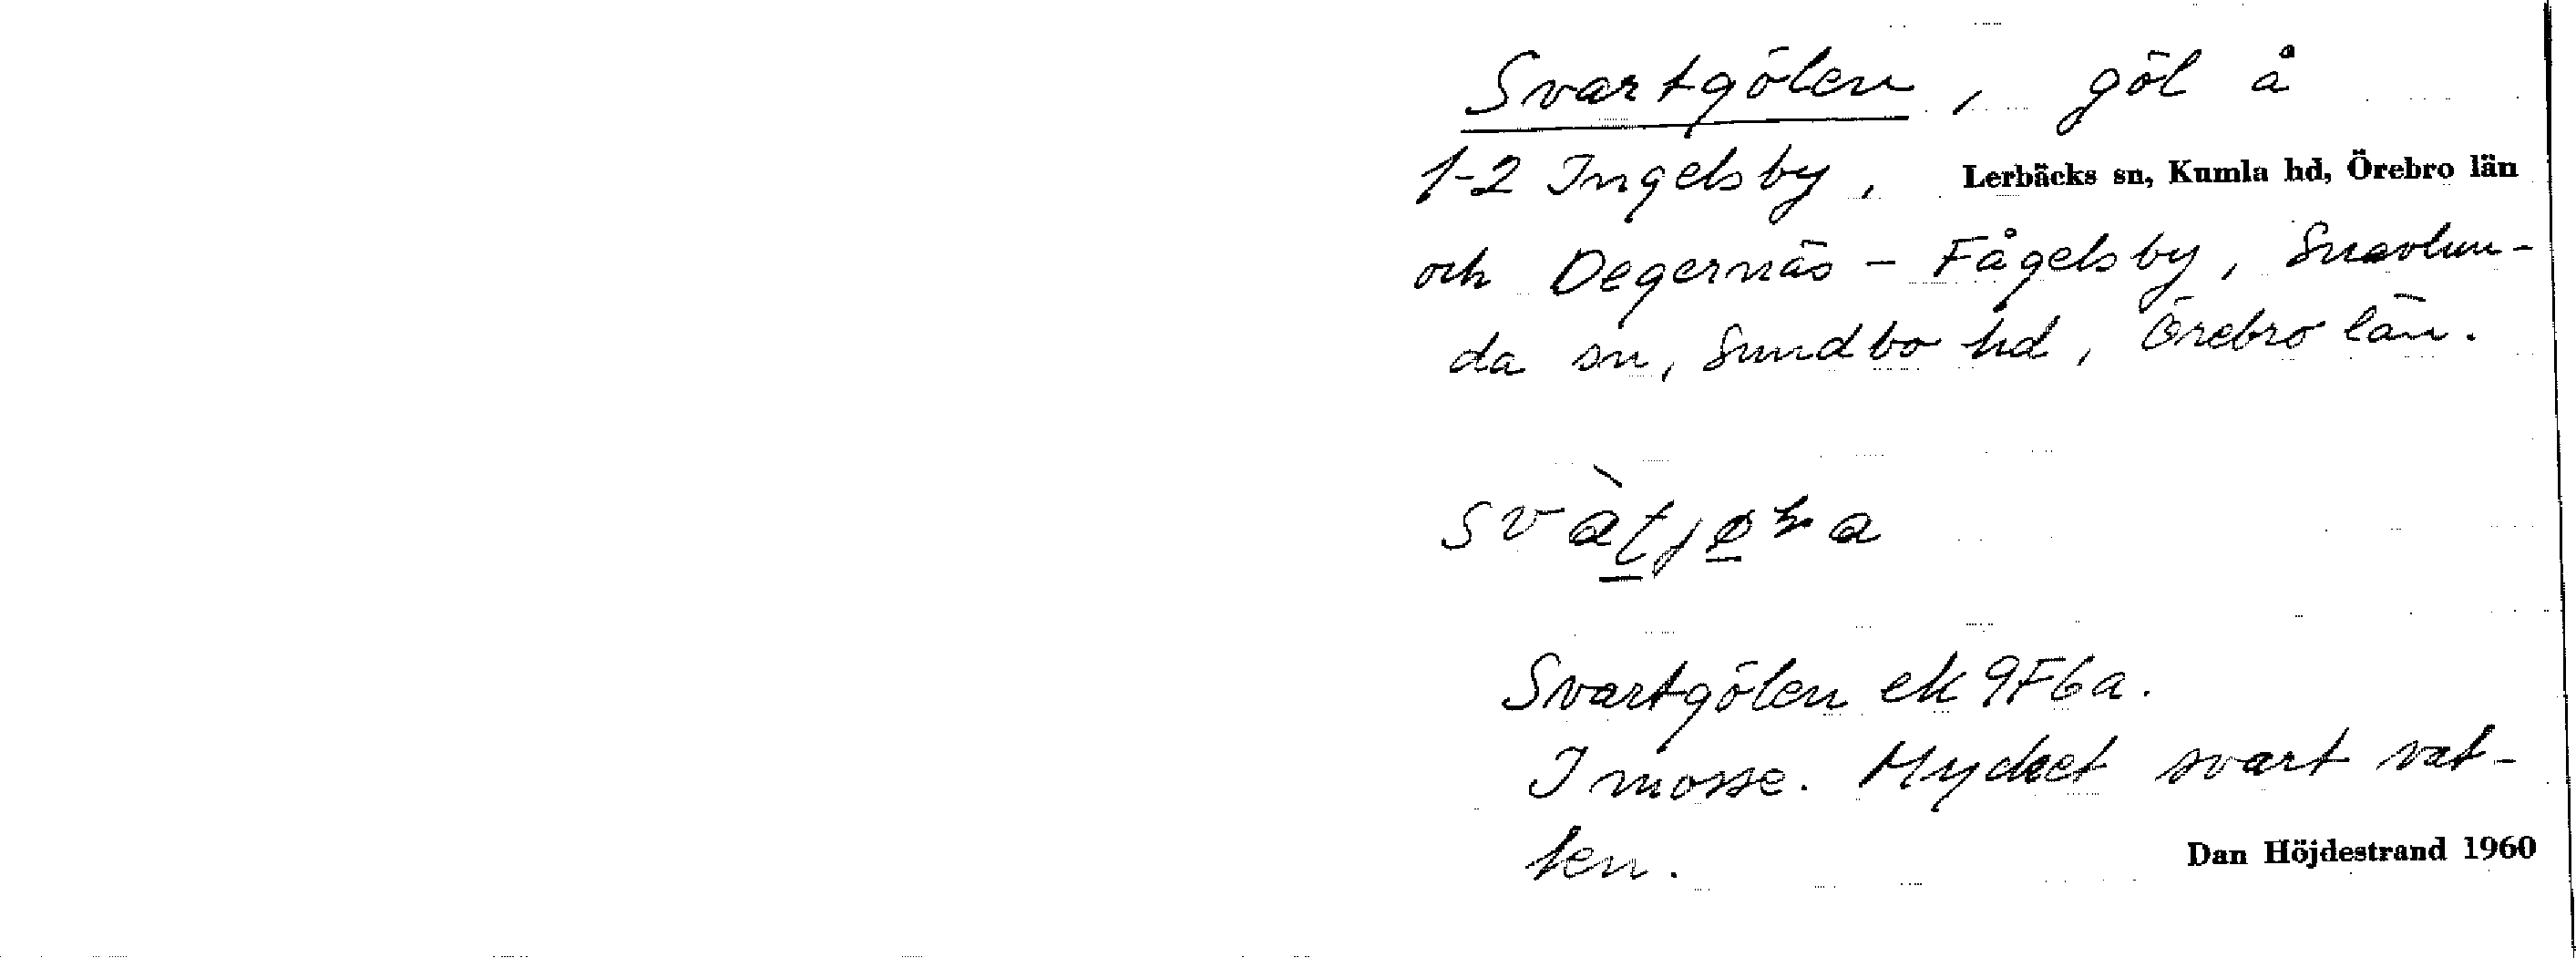 Svartgölen, göl å
1-2 Ingelsby, Lerbäcks sn, Kumla hd, Örebro län
och Degernäs - Fågelsby, Snavlun-
da sn, Sundbo hd, Örebro län.
Svartgölen ek 9F6a.
I mosse. Mycket svart vat-
ten. Dan Höjdestrand 1960